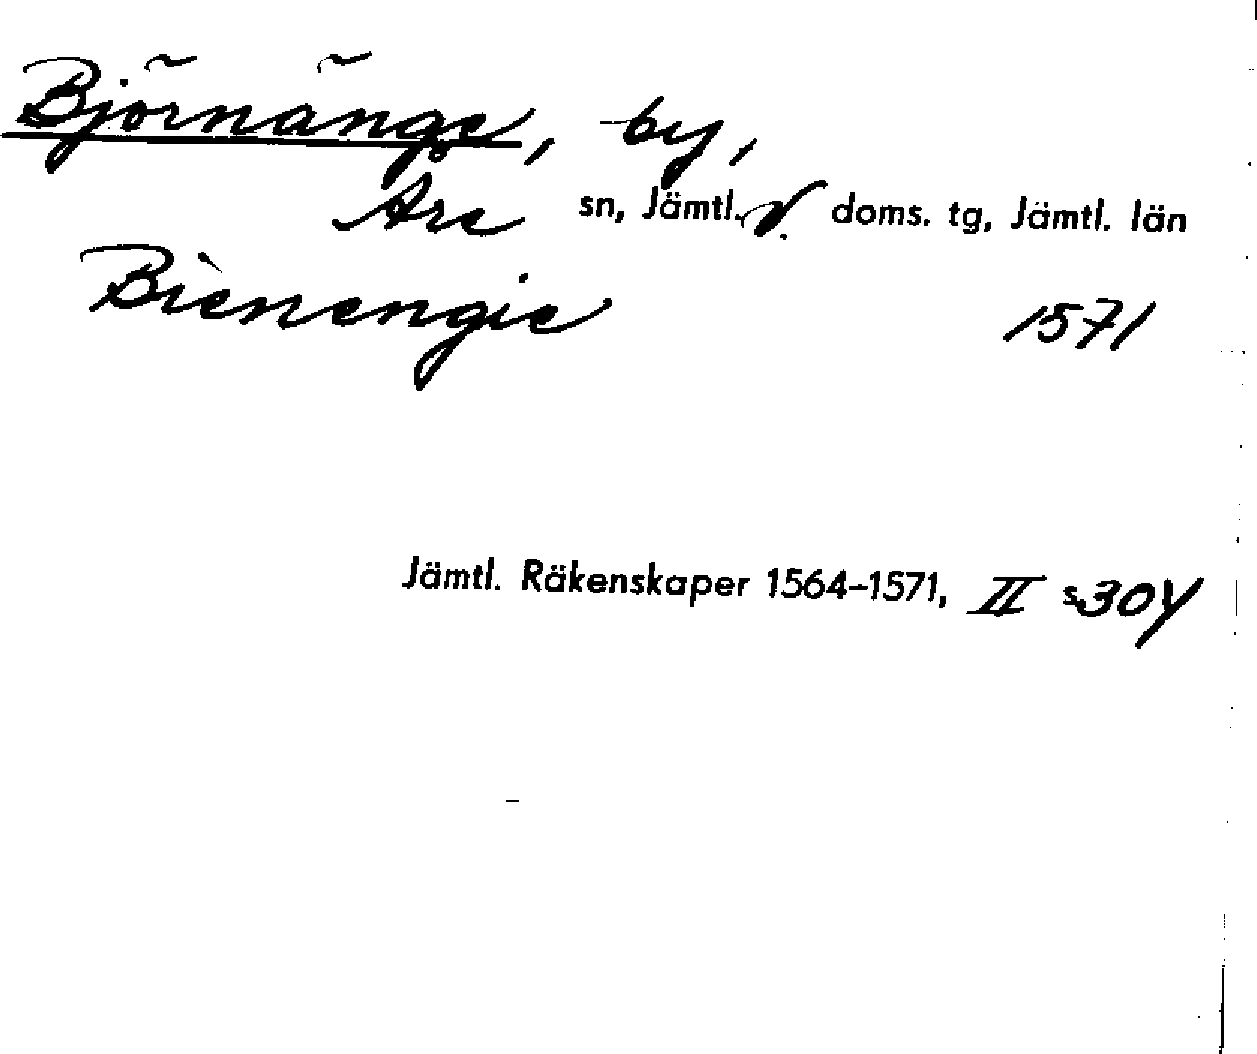 Björnänge, by,
Åre sn, Jämtl. v. doms. tg, Jämtl. län
Bienengie 1571
Jämtl. Räkenskaper 1564-1571, II s. 304